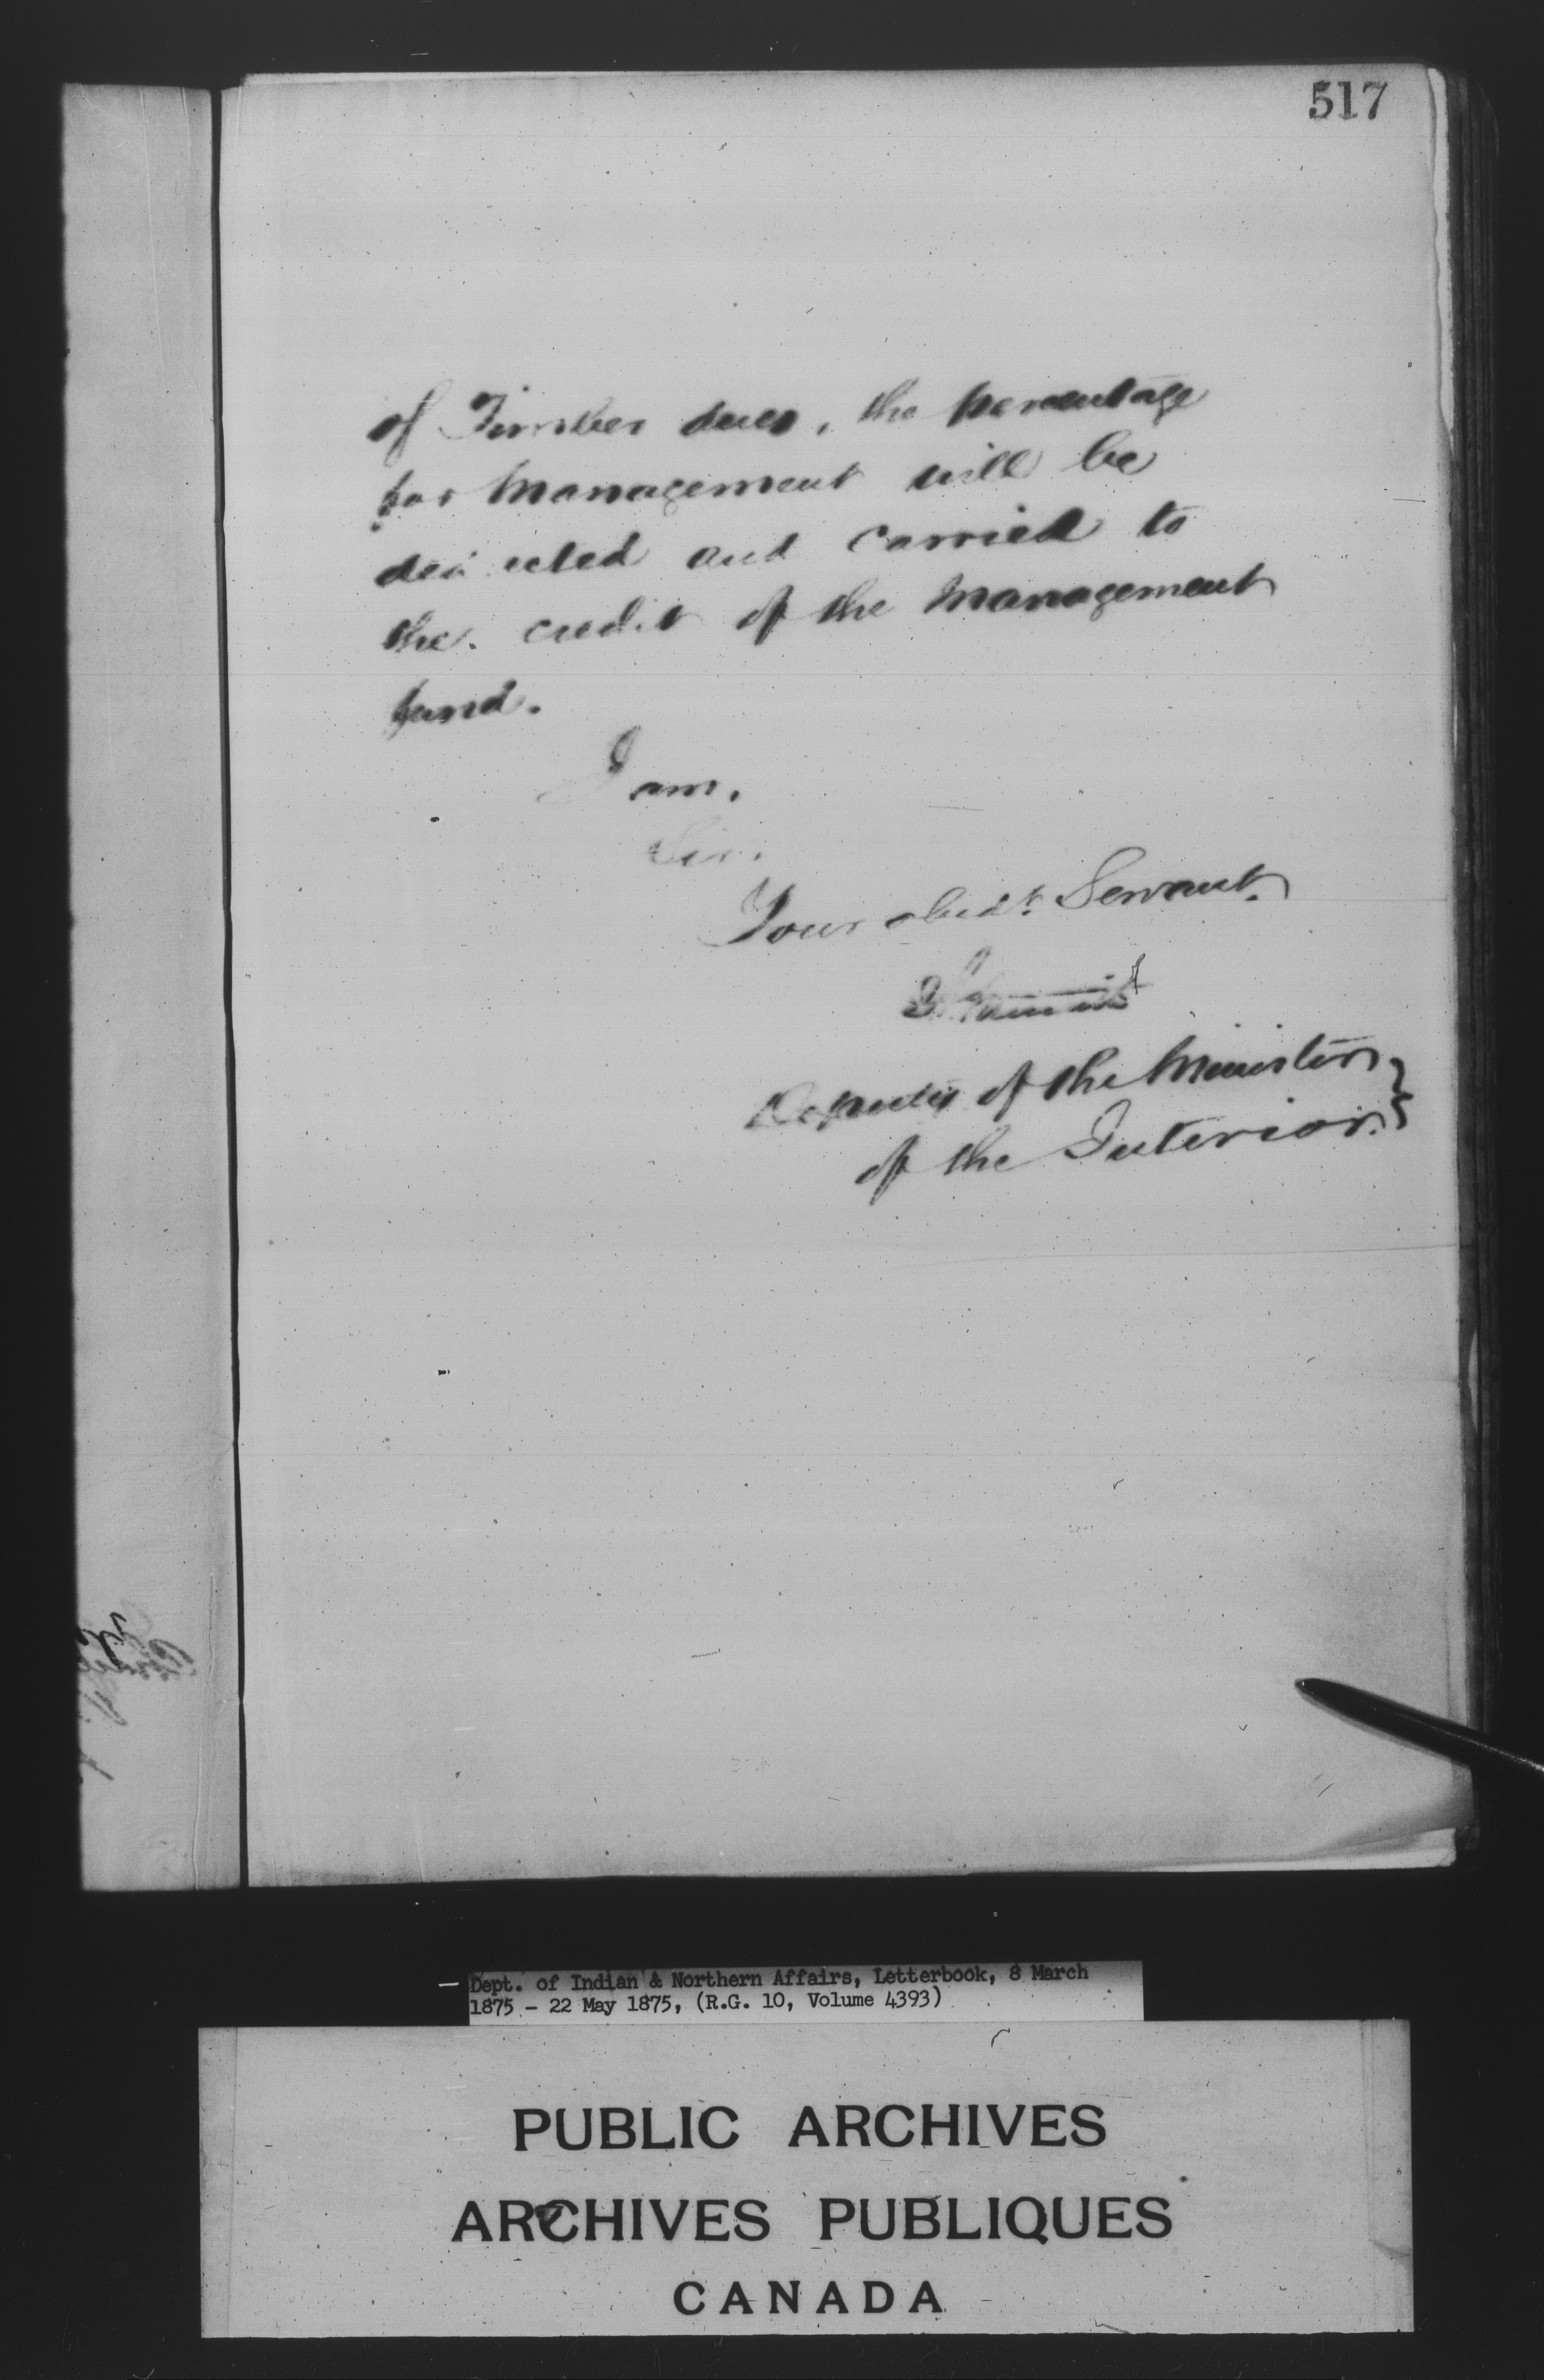 517
of Timber dues, the percentage
for Management will be
deducted and carried to
the credit of the Management
fund.
I am,
Sir,
Your obedt. Servant.
Deputy of the Minister
of the Interior.
Dept. of Indian & Northern Affairs, Letterbook, 8 March
1875 - 22 May 1875, (R.G. 10, Volume 4393)
PUBLIC ARCHIVES
ARCHIVES PUBLIQUES
CANADA